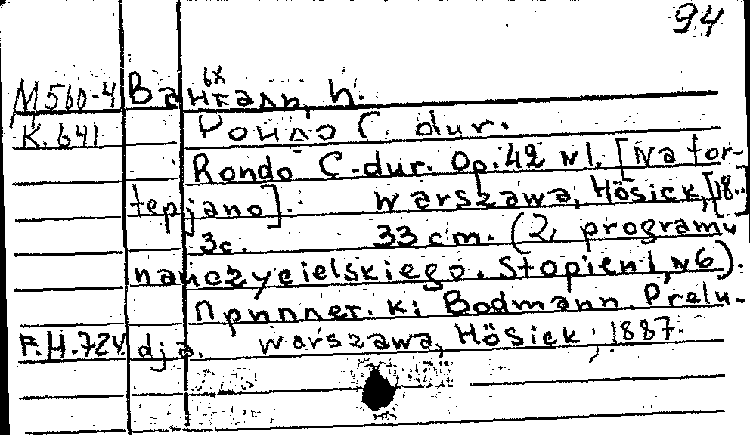 94
М560-4 Вангаль, Н.
К. 641 Рондо C. dur.
Rondo C-dur. Op. 42 N1. [Na for-
tepjano]. Warszawa, Hösick, [18..]
3с. 33 cm. (2, programu
nauczycielskiego. Stopień 1, N6).
Приплет. к: Bodmann. Prelu-
F.H.724 dja. Warszawa, Hösick, 1887.